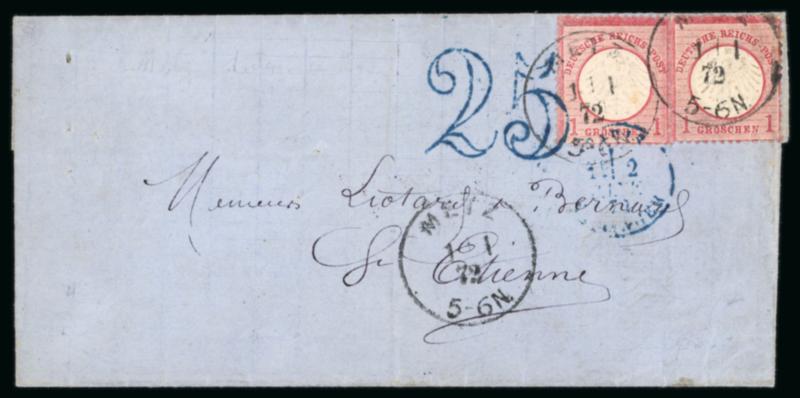 25
DEUTSCHE REICHS-POST
1 GROSCHEN 1
DEUTSCHE REICHS-POST
1 GROSCHEN 1
1 1
72
5-6N.
Messieurs Liotard & Bernard
St. Etienne
METZ
1 1
72
5-6N.